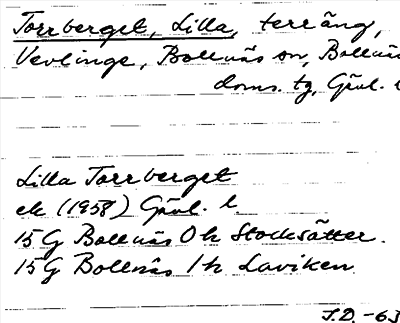 Torrberget, Lilla, terräng,
Vevlinge, Bollnäs sn, Bollnäs
doms. tg, Gävl. l
Lilla Torrberget
ek (1958) Gävl. l.
15G Bollnäs 0h Stocksätter.
15G Bollnäs 1h Laviken
J.D. -63